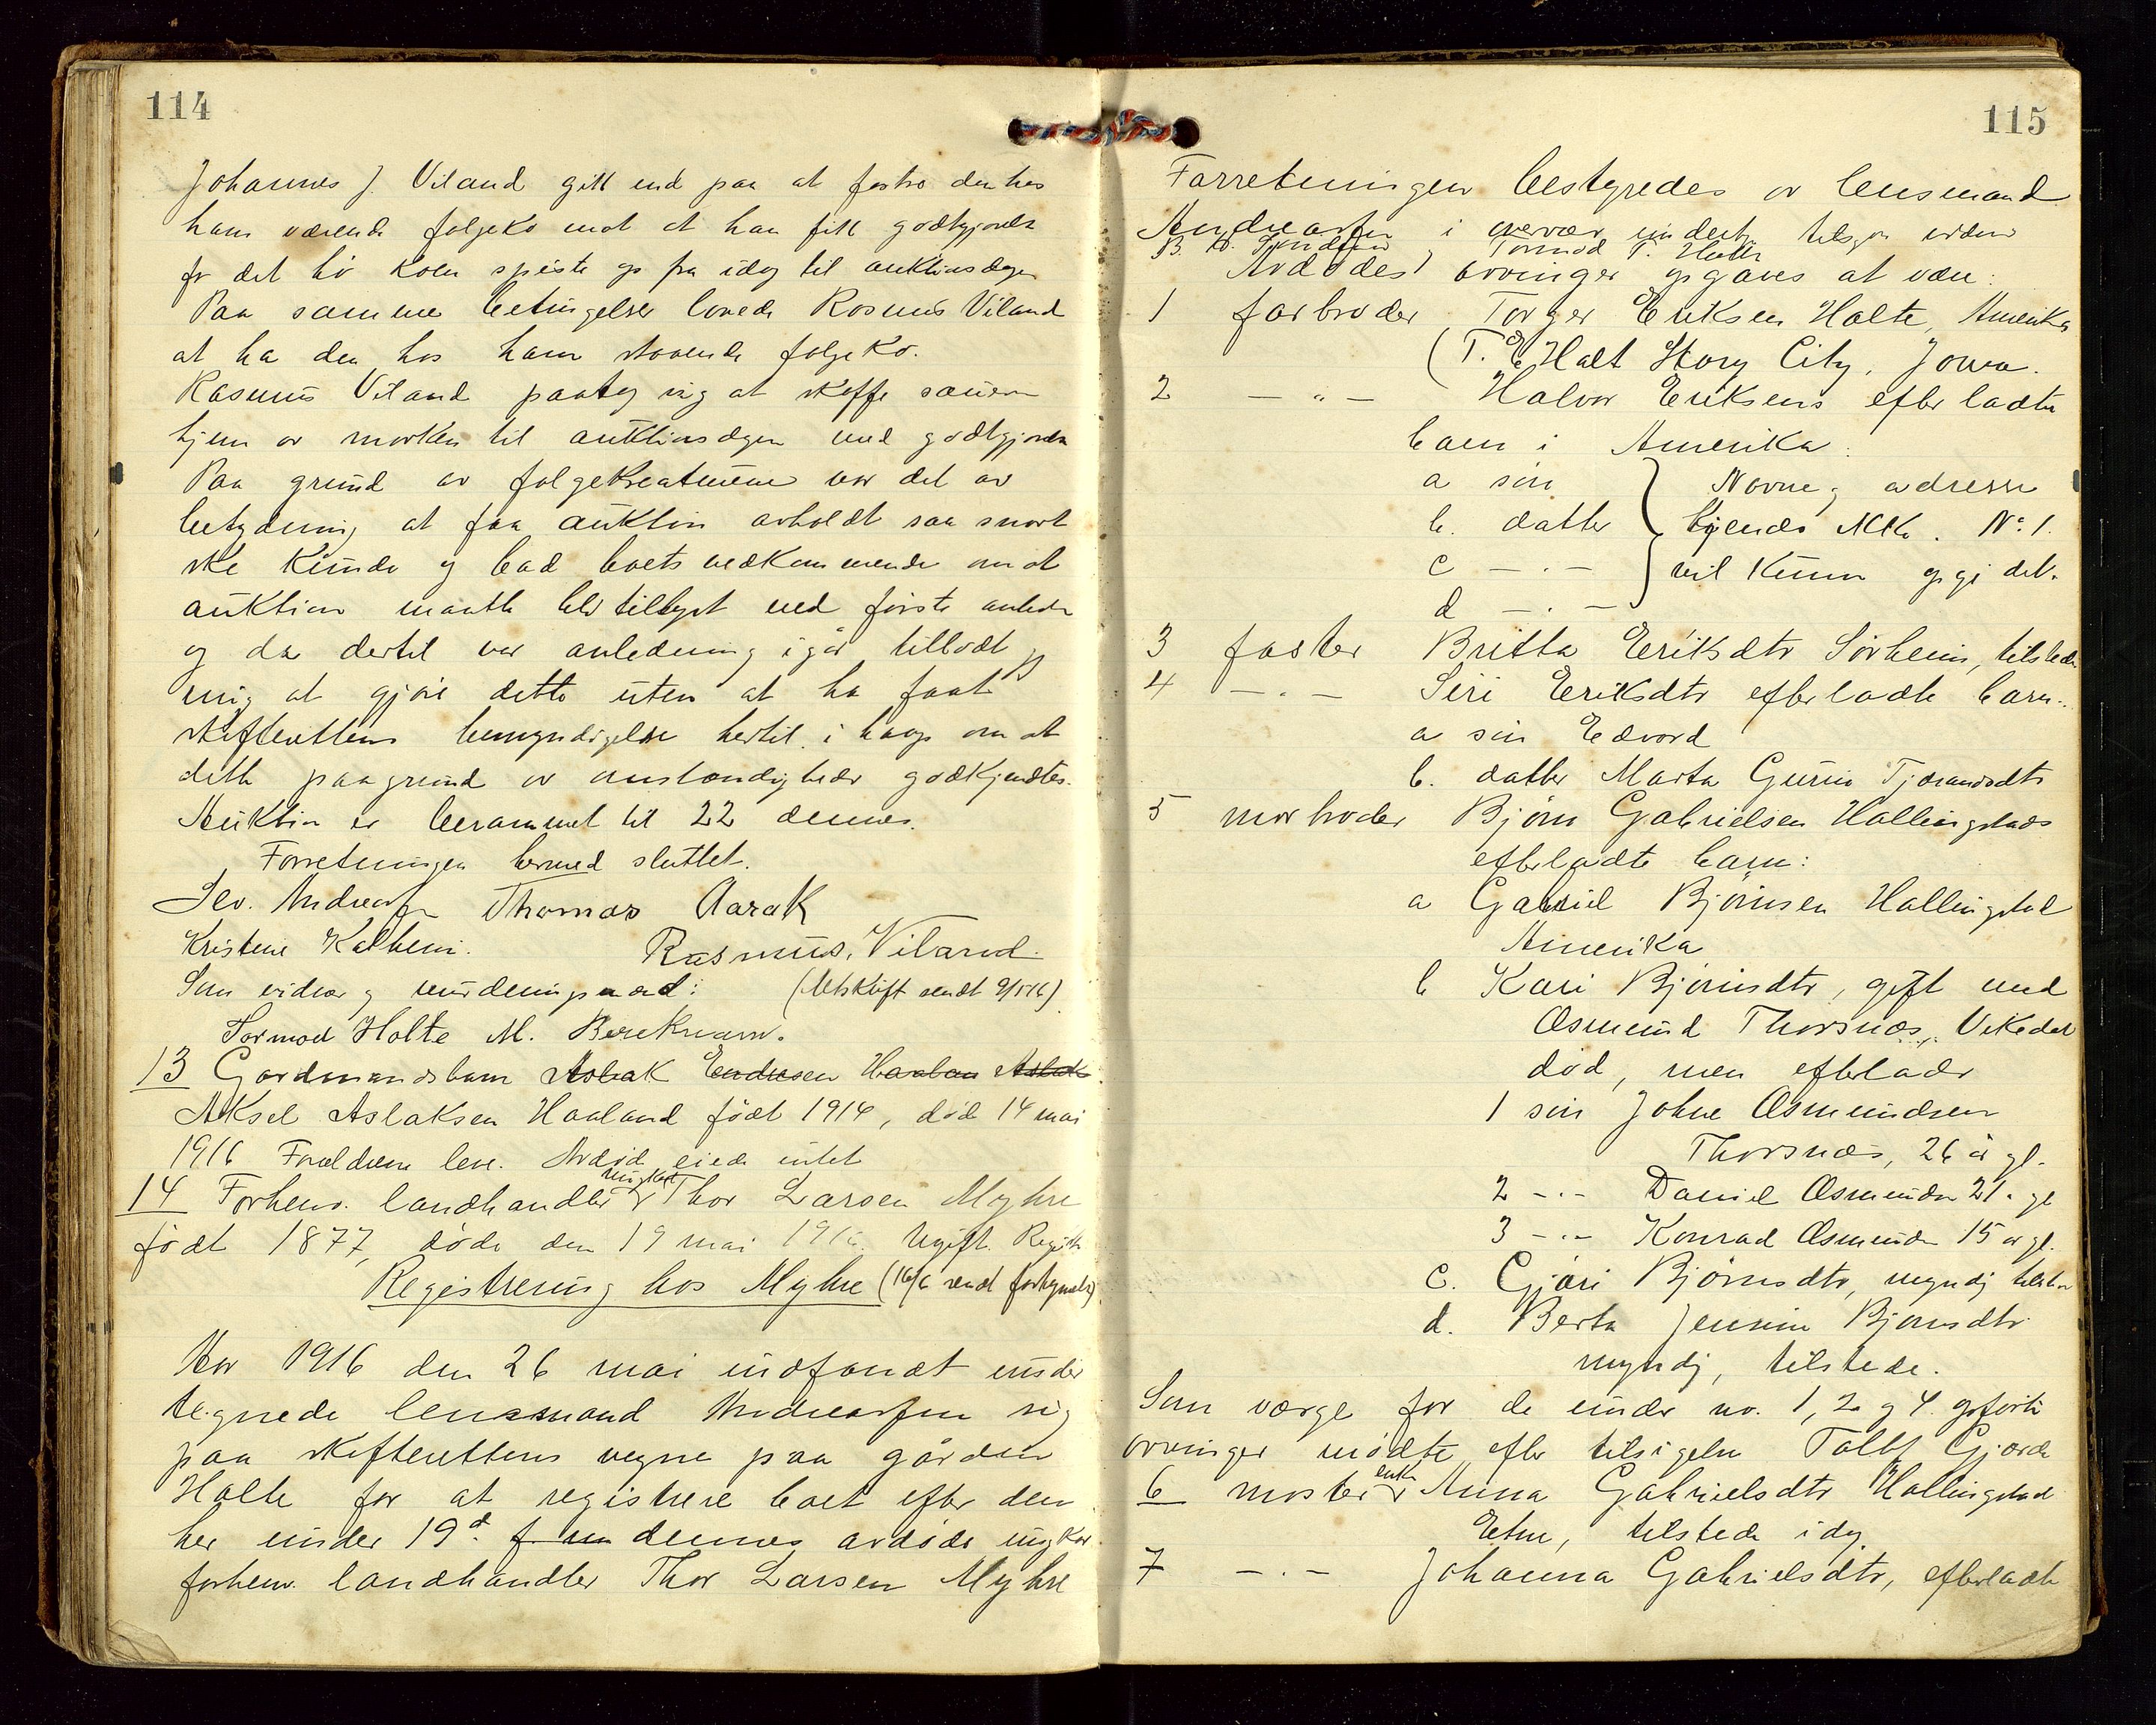 114
Johannes J. Viland gikk ind paa at fostre den hos
ham værende følgeko mot at han fikk godtgjørelse
for det hø koen spiste op fra idag til auktionsdagen
Paa samme betingelser lovede Rasmus Viland
at ha den hos ham staaende følgeko.
Rasmus Viland paatog sig at skaffe sauerne
hjem av marken til auktionsdagen med godtgjørelse
Paa grund av følgekreaturene var det av
betydning at faa auktion avholdt saa snart
ske kunde og bad boets vedkommende om at
auktion maatte bli tillyst ved første anledn
og da dertil var anledning igår tillodt jeg
mig at gjøre dette uten at ha faat
skifterettens bemyndigelse hertil i haap om at
dette paa grund av omstændigheder godkjendtes.
Auktion er berammet til 22 dennes.
Forretningen hermed sluttet.
Sev. Andreassen Thomas Aarak
Kristine Kalheim. Rasmus. Viland.
Som vidner og vurderingsmænd: (Utskrift sendt 9/5 16)
Tormod Holte M. Berekvam.
13 Gardmandsbarn Aslak Endresen Haaland Aslak
Aksel Aslaksen Haaland født 1914, død 14 mai
1916 Forældrene leve. Avdød eiede intet
14 Forhenv. landhandler ungkar Thor Larsen Myhre
født 1877, døde den 19 mai 1916. Ugift. Regist
Registrering hos Myhre (16/6 sendt forhyrnels)
Aar 1916 den 26 mai indfandt under
tegnede lensmand Andreassen sig
paa skifterettens vegne paa gården
Holte for at registrere boet efter den
her under 19d f. m dennes avdøde ungkar
forhenv. landhandler Thor Larsen Myhre
115
Forretningen bestyredes av lensmand
Andreassen i overvær undertegn tilsagn vidner
B. Tormod T. Holte
Avdødes arvinger opgaves at være:
1 farbroder Torger Eriksen Holte, Amerika
(T. E. Halt Story City, Jowa.
2 - " - Halvor Eriksens efterladte
barn i Amerika:
a søn Navne og adresse
b. datter kjendes ikke. No. 1.
c - " - vil kunne opgi det.
d - " -
3 faster Britta Eriksdtr Sørheim, tilstede
4 - " - Siri Eriksdtr efterladte barn:
a søn Edvard
b. datter Marta Gurine Tjeransdtr
5 morbroder Bjørn Gabrielsen Hallingstads
efterladte barn:
a Gabriel Bjørnsen Hallingstad
Amerika
b Kari Bjørnsdtr, gift med
Osmund Thorsnæs, Vikedal
død, men efterlader
1 søn Johne Osmundsen
Thorsnæs, 26 år gl.
2 - " - Daniel Osmundsn 21 " gl
3 - " - Konrad Osmundsn 15 år gl.
c. Gjøri Bjørnsdtr, myndig tilstede
d. Berta Jensine Bjørnsdtr
myndig, tilstede.
Som værge for de under no. 1, 2 og 4 opførte
arvinger mødte efter tilsigelse Tollef Gjerde
6 moster enke Anna Gabrielsdtr Hallingstad
Etne, tilstede idag
7 - " - Johanna Gabrielsdtr, efterladte